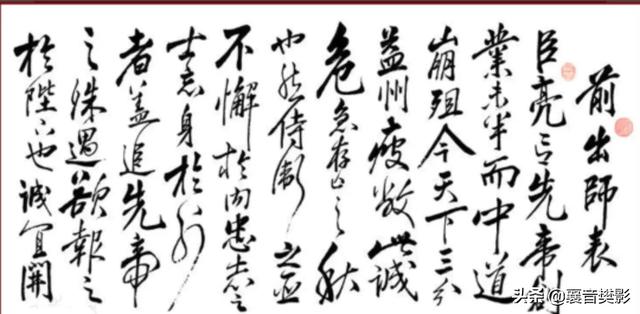 前出師表
臣亮言先帝創
業未半而中道
崩殂今天下三分
益州疲敝此誠
危急存亡之秋
也然侍衛之臣
不懈於内忠志之
士忘身於外
者蓋追先帝
之殊遇欲報之
於陛下也誠宜開
头条 @襄音樊影